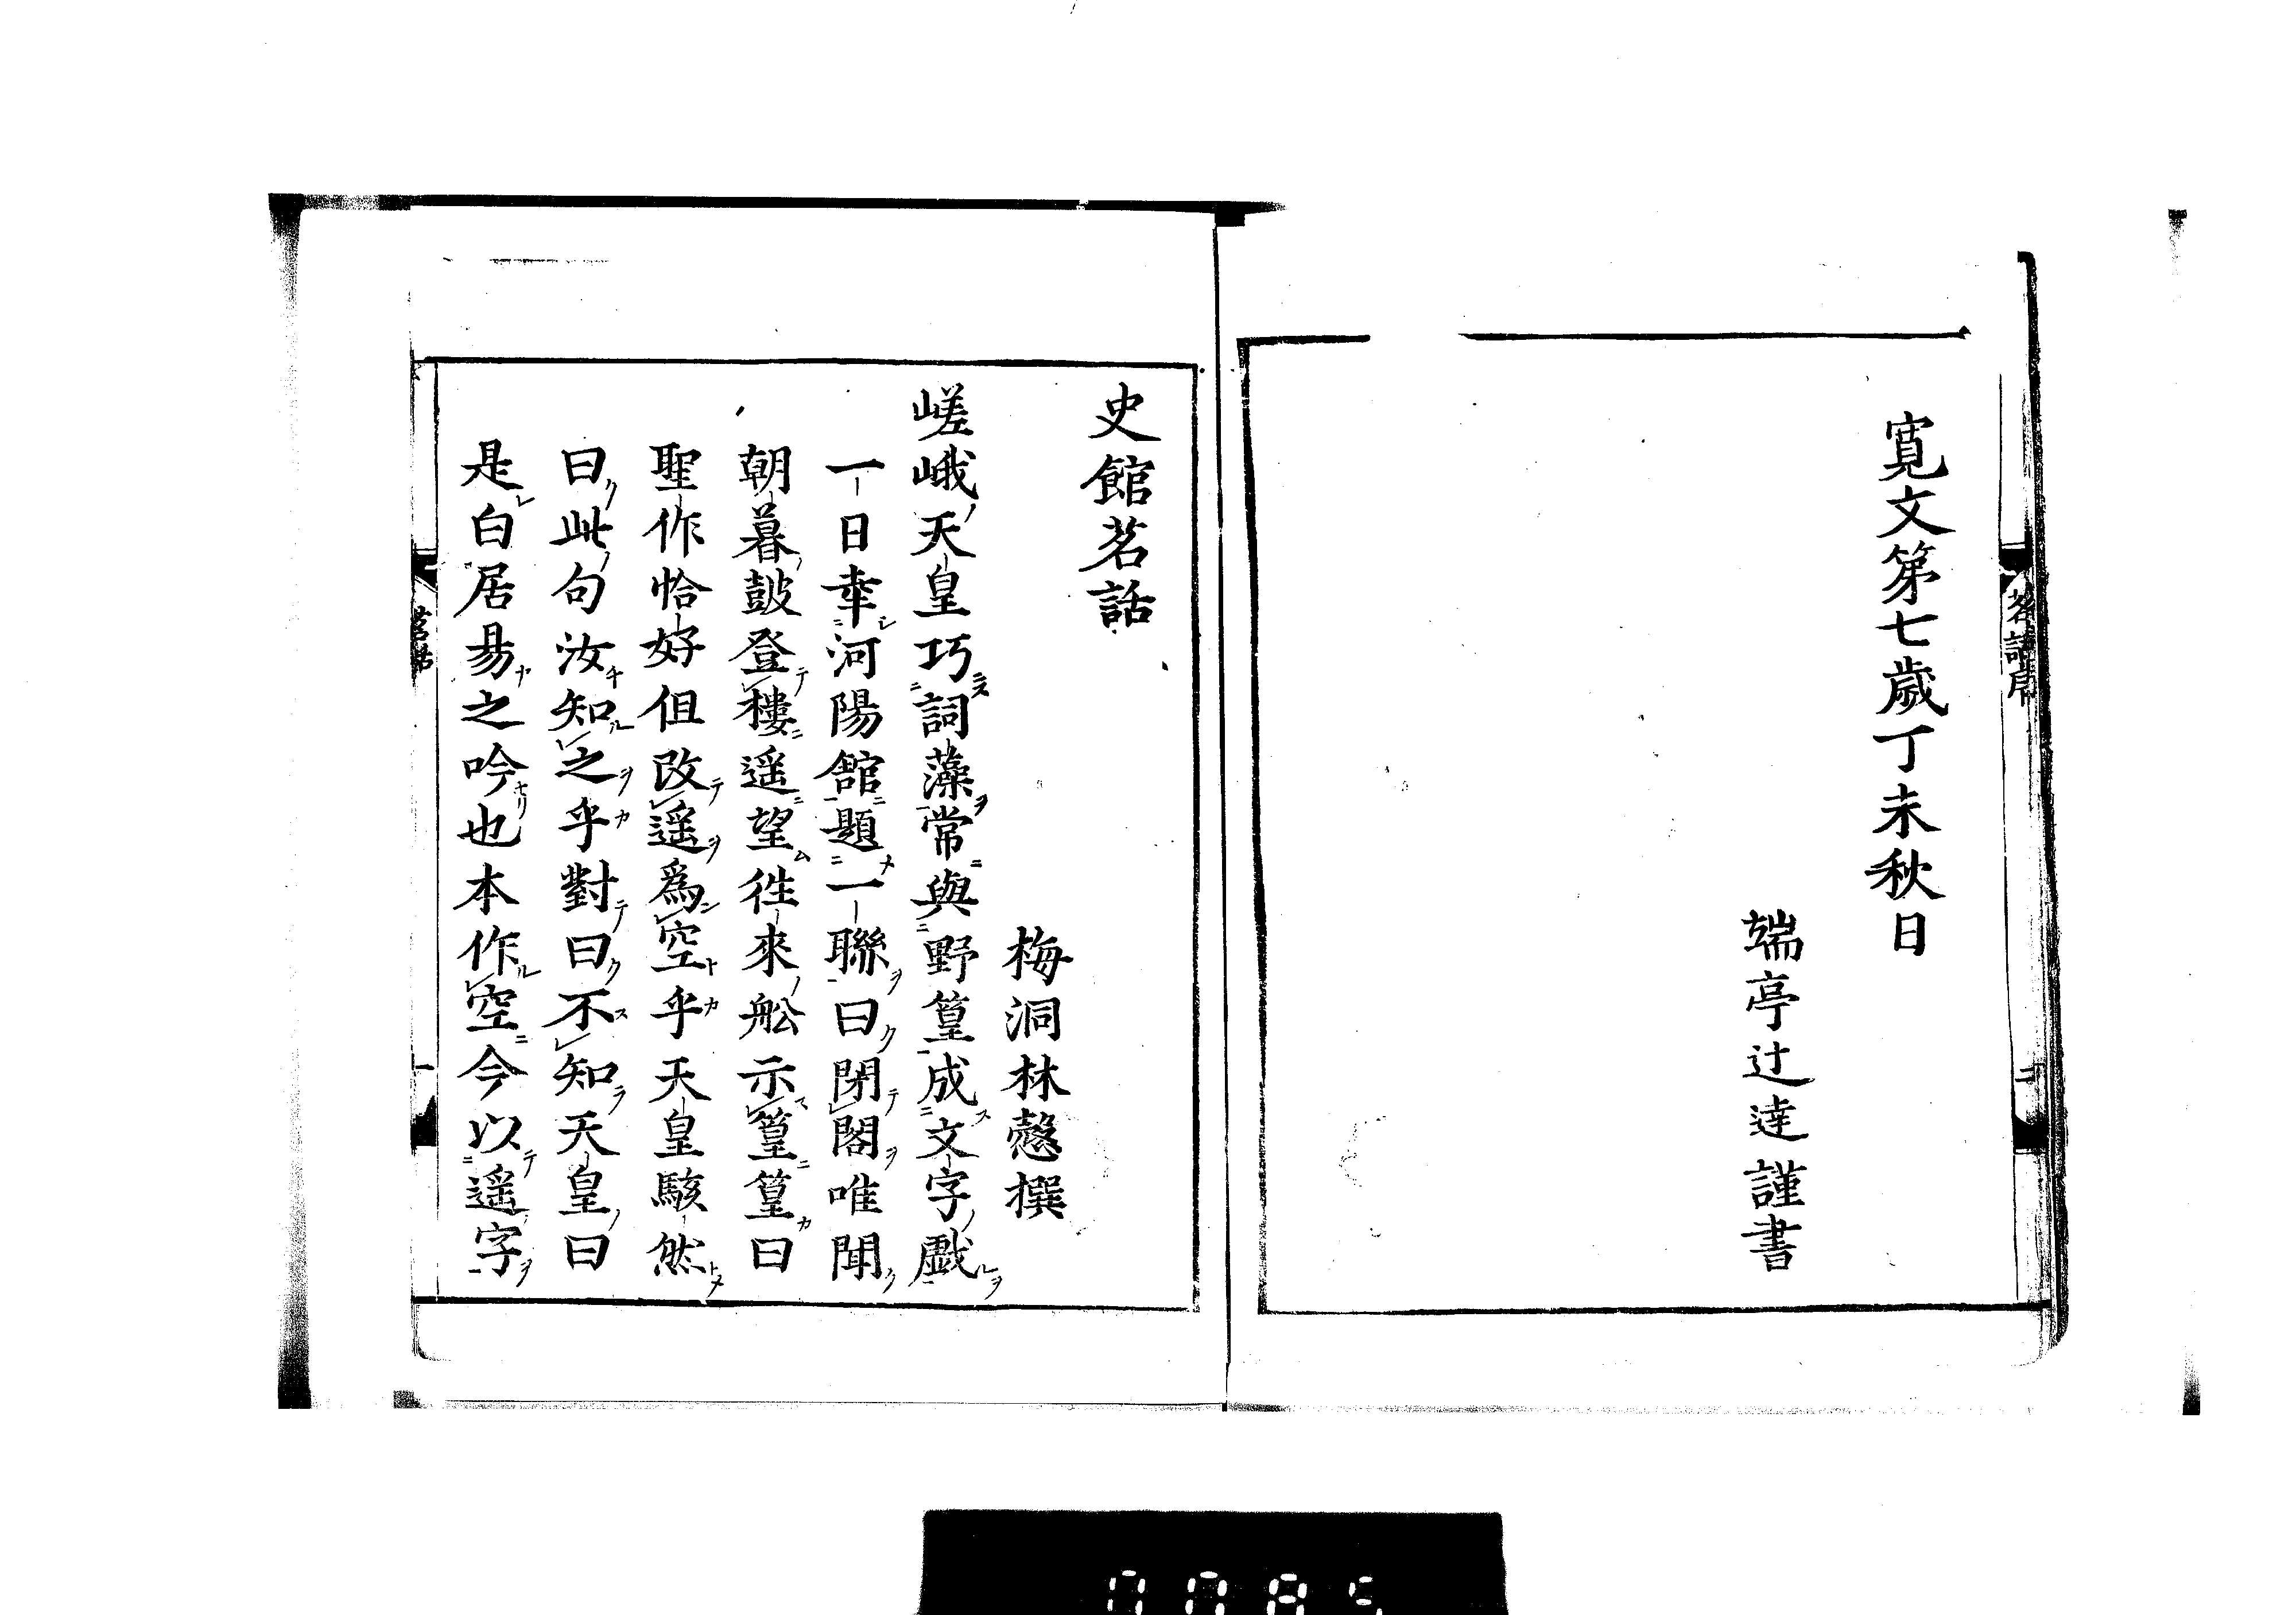 寛文第七歳丁未秋日
端亭辻達謹書
茗話序
二
史館茗話
梅洞林愨撰
嵯峨天皇巧詞藻常與野篁成文字戲
一日幸河陽館題一聯曰閉閣唯聞
朝暮鼓登樓遥望往來舩示篁篁曰
聖作恰好但改遥爲空乎天皇駭然
曰此句汝知之乎對曰不知天皇曰
是白居易之吟也本作空今以遥字
茗話
一
0085